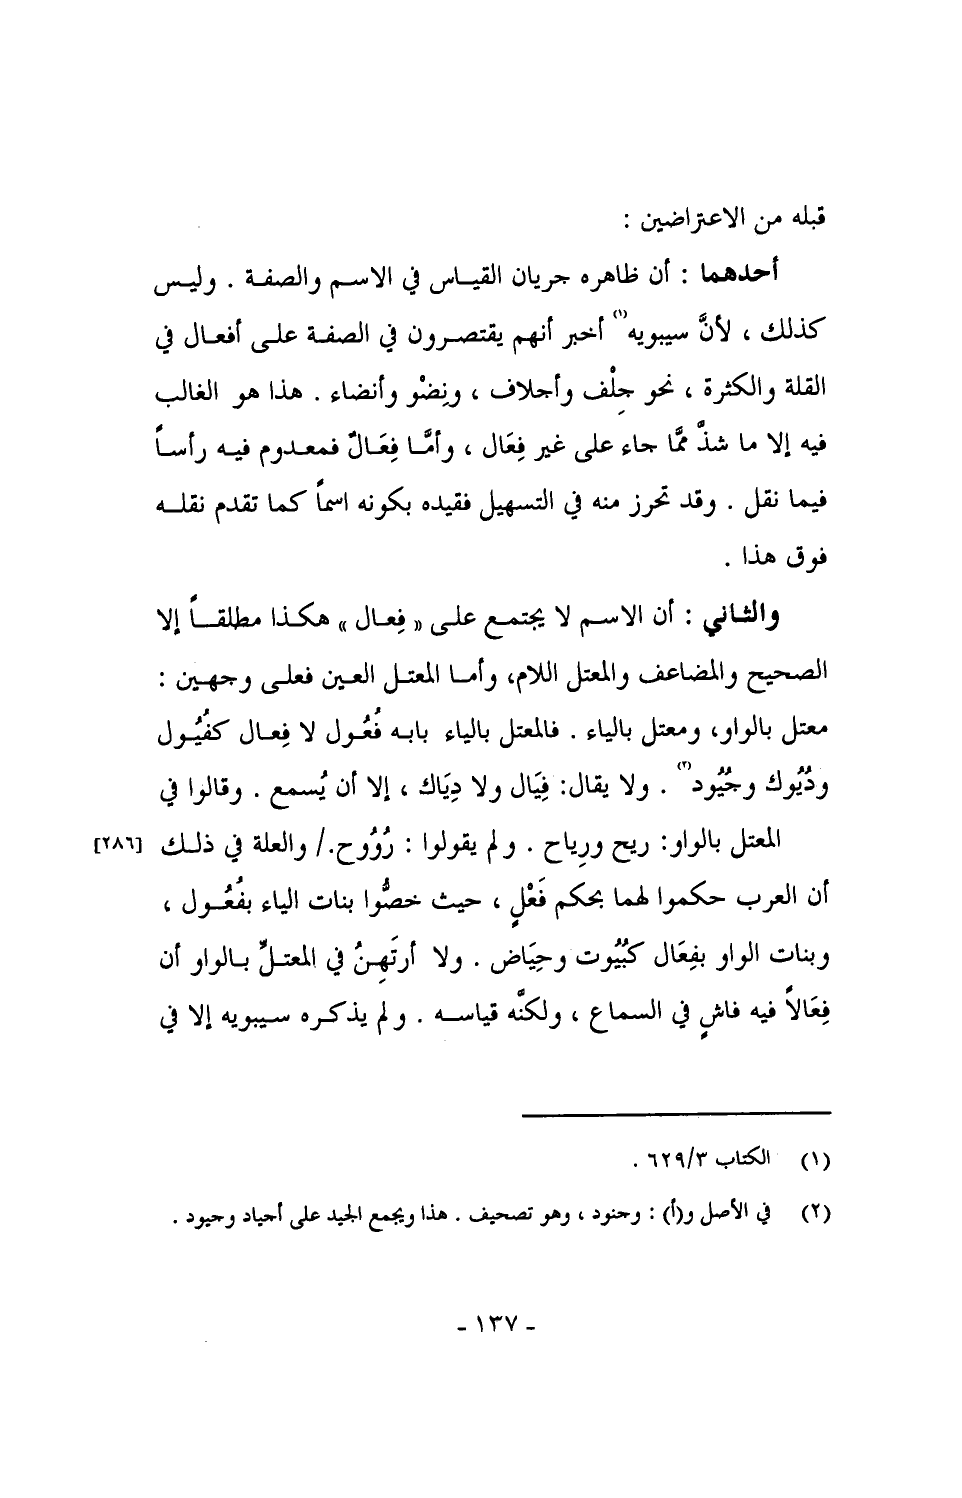 قبله من الاعتراضين :
أحدهما : أن ظاهره جريان القياس في الاسم والصفة . وليس
كذلك ، لأنَّ سيبويه(١) أخبر أنهم يقتصرون في الصفة على أفعال في
القلة والكثرة ، نحو حِلْف وأحلاف ، ونِضْو وأنضاء . هذا هو الغالب
فيه إلا ما شذَّ ممَّا جاء على غير فِعَال ، وأمَّا فِعَالٌ فمعدوم فيه رأساً
فيما نقل . وقد تحرز منه في التسهيل فقيده بكونه اسماً كما تقدم نقله
فوق هذا .
والثاني : أن الاسم لا يجتمع على « فِعال » هكذا مطلقاً إلا
الصحيح والمضاعف والمعتل اللام، وأما المعتل العين فعلى وجهين :
معتل بالواو، ومعتل بالياء . فالمعتل بالياء بابه فُعُول لا فِعال كفُيُول
ودُيُوك وجُيُود(٢) . ولا يقال: فِيَال ولا دِيَاك ، إلا أن يُسمع . وقالوا في
المعتل بالواو: ريح ورِياح . ولم يقولوا : رُوُوح./ والعلة في ذلك [٢٨٦]
أن العرب حكموا لهما بحكم فَعْلٍ ، حيث خصُّوا بنات الياء بفُعُول ،
وبنات الواو بفِعَال كبُيُوت وحِيَاض . ولا أرتَهِنُ في المعتلِّ بالواو أن
فِعَالاً فيه فاشٍ في السماع ، ولكنَّه قياسه . ولم يذكره سيبويه إلا في
(١) الكتاب ٦٢٩/٣ .
(٢) في الأصل و(أ) : وحنود ، وهو تصحيف . هذا ويجمع الجيد على أجياد وجيود .
- ١٣٧ -